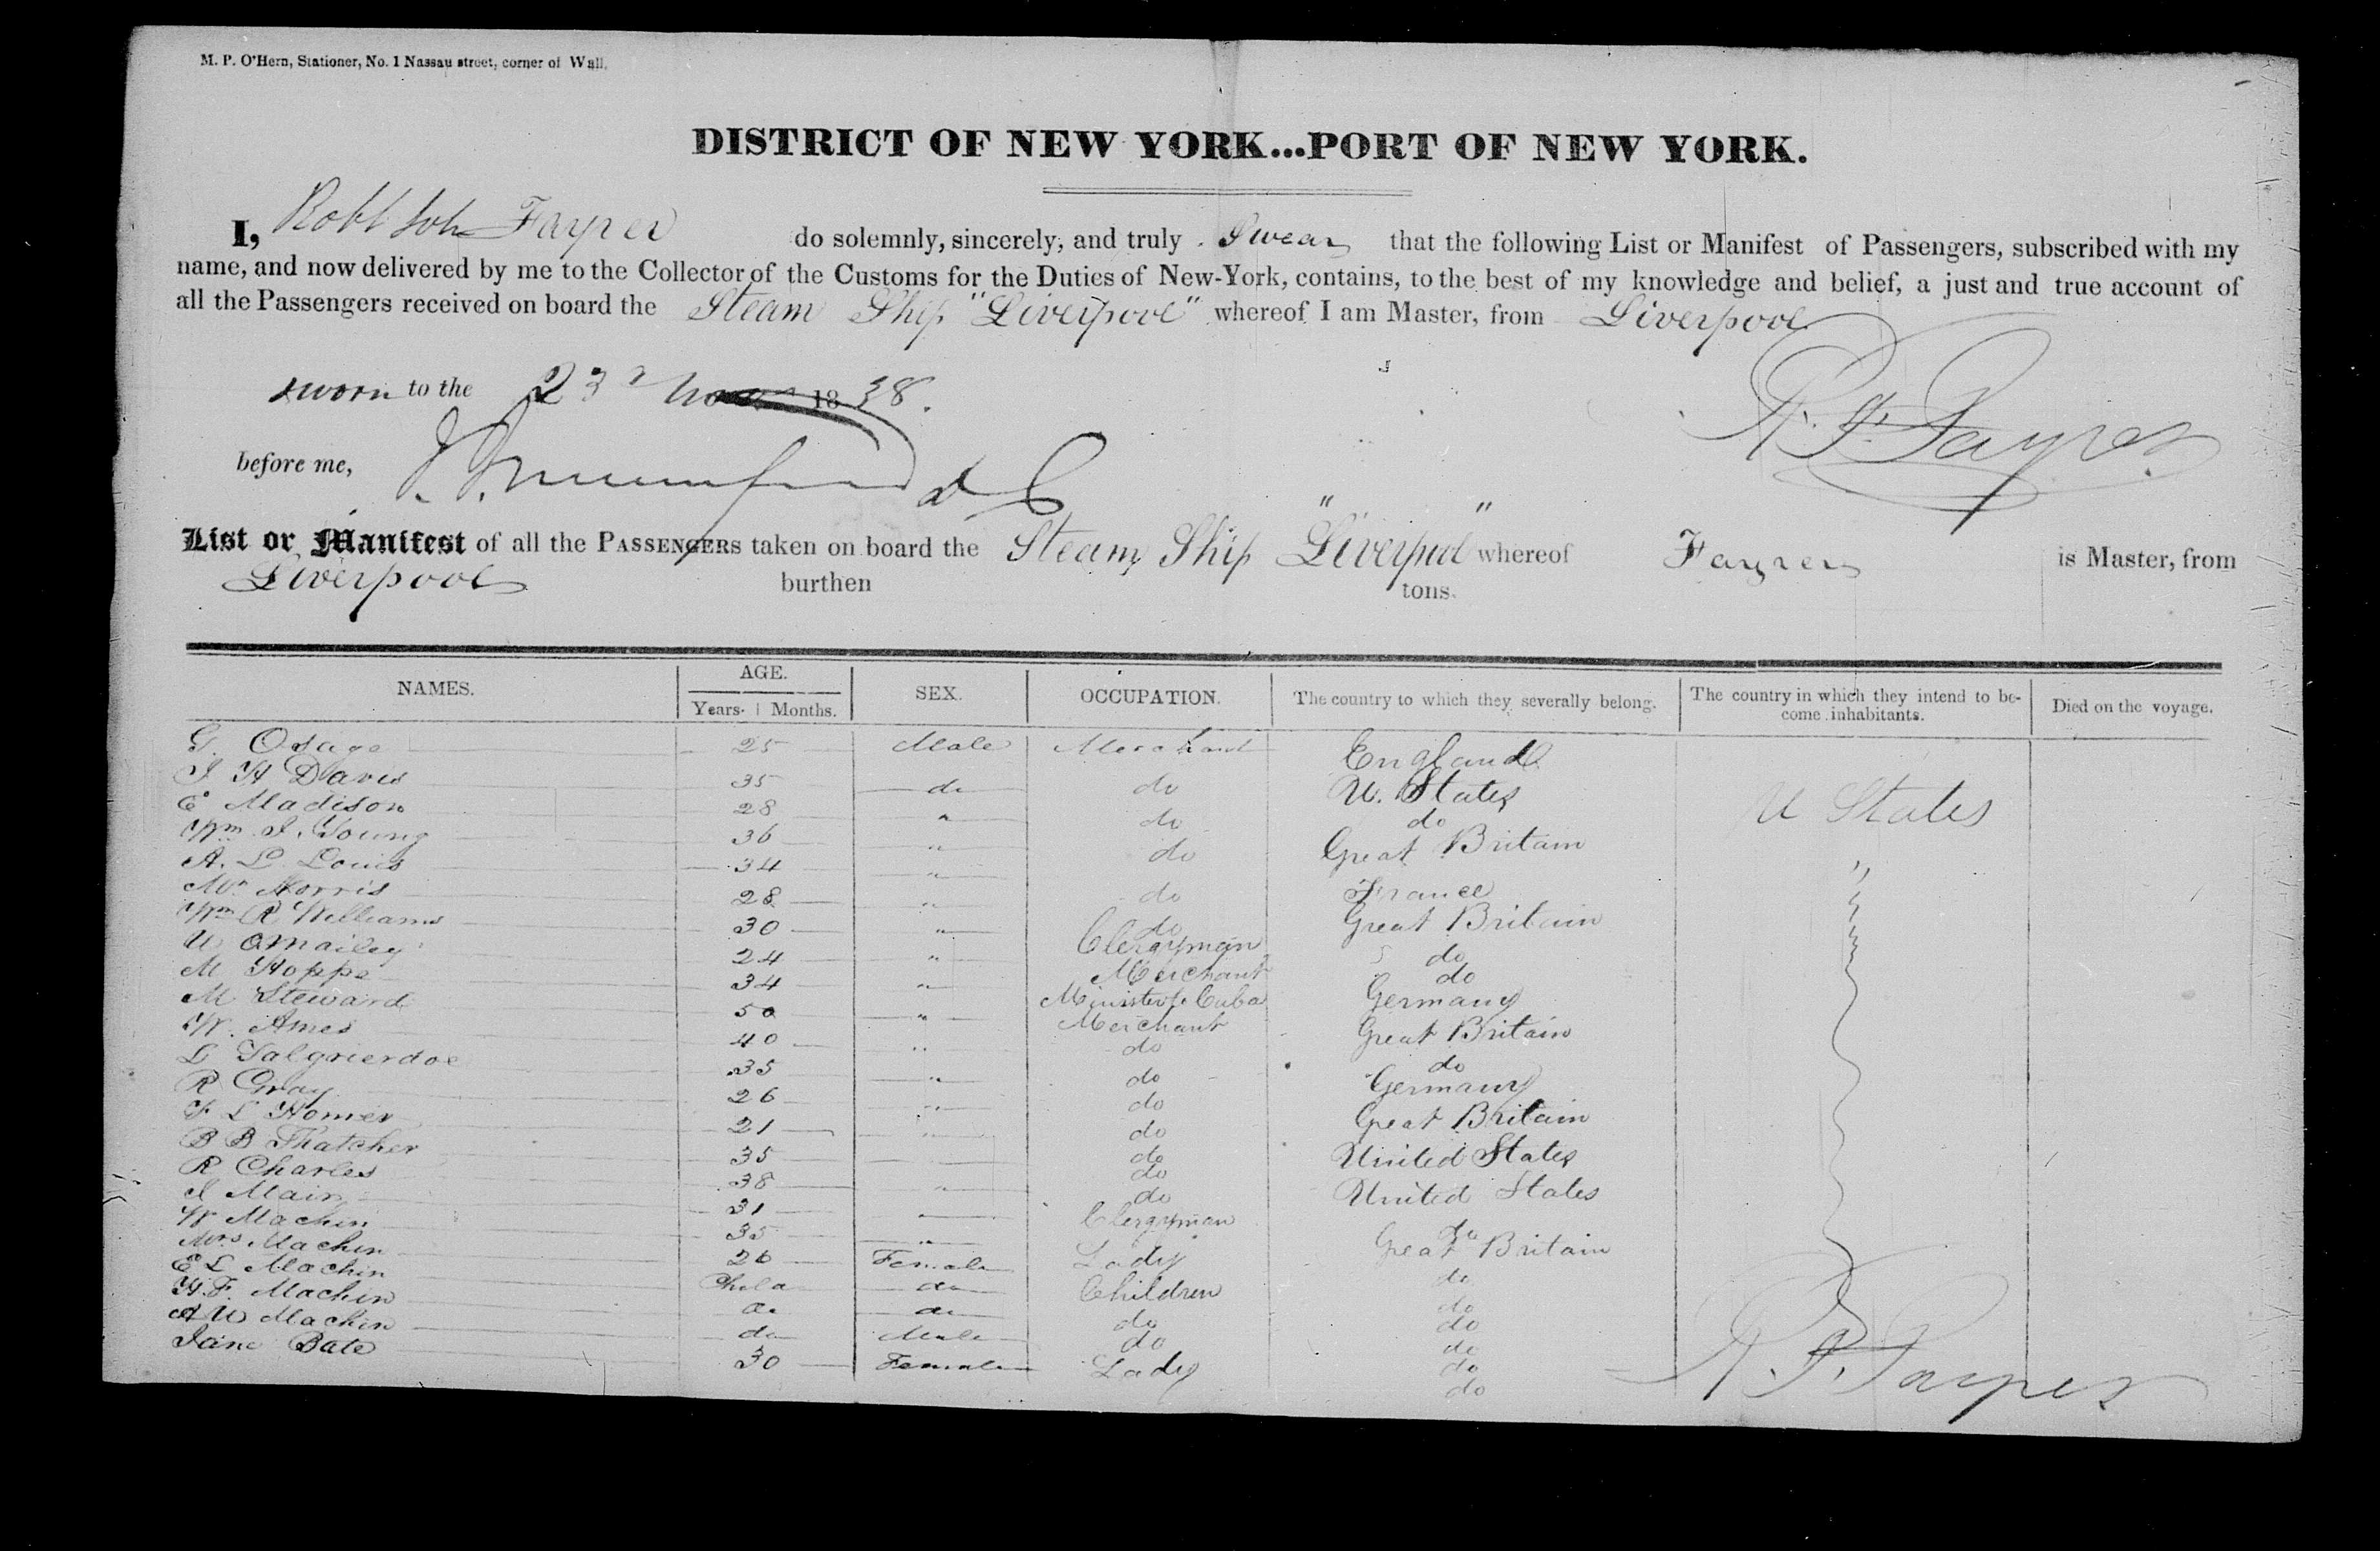 M. P. O'Hern, Stationer, No. 1 Nassau street, corner of Wall.
DISTRICT OF NEW YORK...PORT OF NEW YORK.
I, Robt Joh Fayrer do solemnly, sincerely, and truly Swear that the following List or Manifest of Passengers, subscribed with my
name, and now delivered by me to the Collector of the Customs for the Duties of New-York, contains, to the best of my knowledge and belief, a just and true account of
all the Passengers received on board the Steam Ship "Liverpool" whereof I am Master, from Liverpool
sworn to the 23 1838.
R. J. Fayrer
before me,
List or Manifest of all the PASSENGERS taken on board the Steam Ship "Liverpool" whereof Fayrer is Master, from
Liverpool burthen tons.
NAMES. AGE. Years. Months. SEX. OCCUPATION. The country to which they severally belong. The country in which they intend to become inhabitants. Died on the voyage.
G. Osage 25 Male Merchant England
J H Davis 35 do do U. States
E Madison 28 " do do U States
Wm J. Young 36 " do Great Britain
A. L Louis 34 " do France "
Mr Norris 28 " do Great Britain "
Wm R Williams 30 " Clergyman do "
W OMailey 24 " Merchant do
M Hoppe 34 " Minister to Cuba Germany
M Steward 50 " Merchant Great Britain
W. Ames 40 " do do
L 35 " do Germany
R Gray 26 " do Great Britain
F L Homer 21 " do United States
B B Thatcher 35 do United States
R Charles 38 " do
J Main 31 " do do
W Machin 35 " Clergyman Great Britain
Mrs Machin 26 Female Lady do
E L Machin Child do Children do
H. F. Machin do do do do
A W Machin do Male do do
Jane Bate 30 Female Lady do
do
R. J. Fayrer